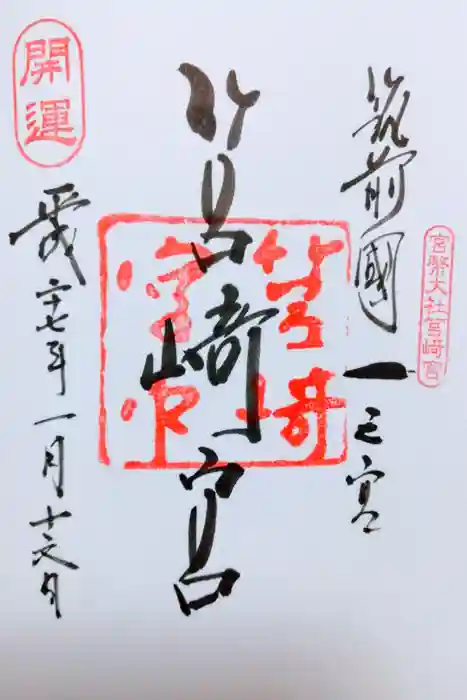 筑前國一之宮
官幣大社筥崎宮
筥崎宮
筥崎宮
開運
平成二十七年一月十六日